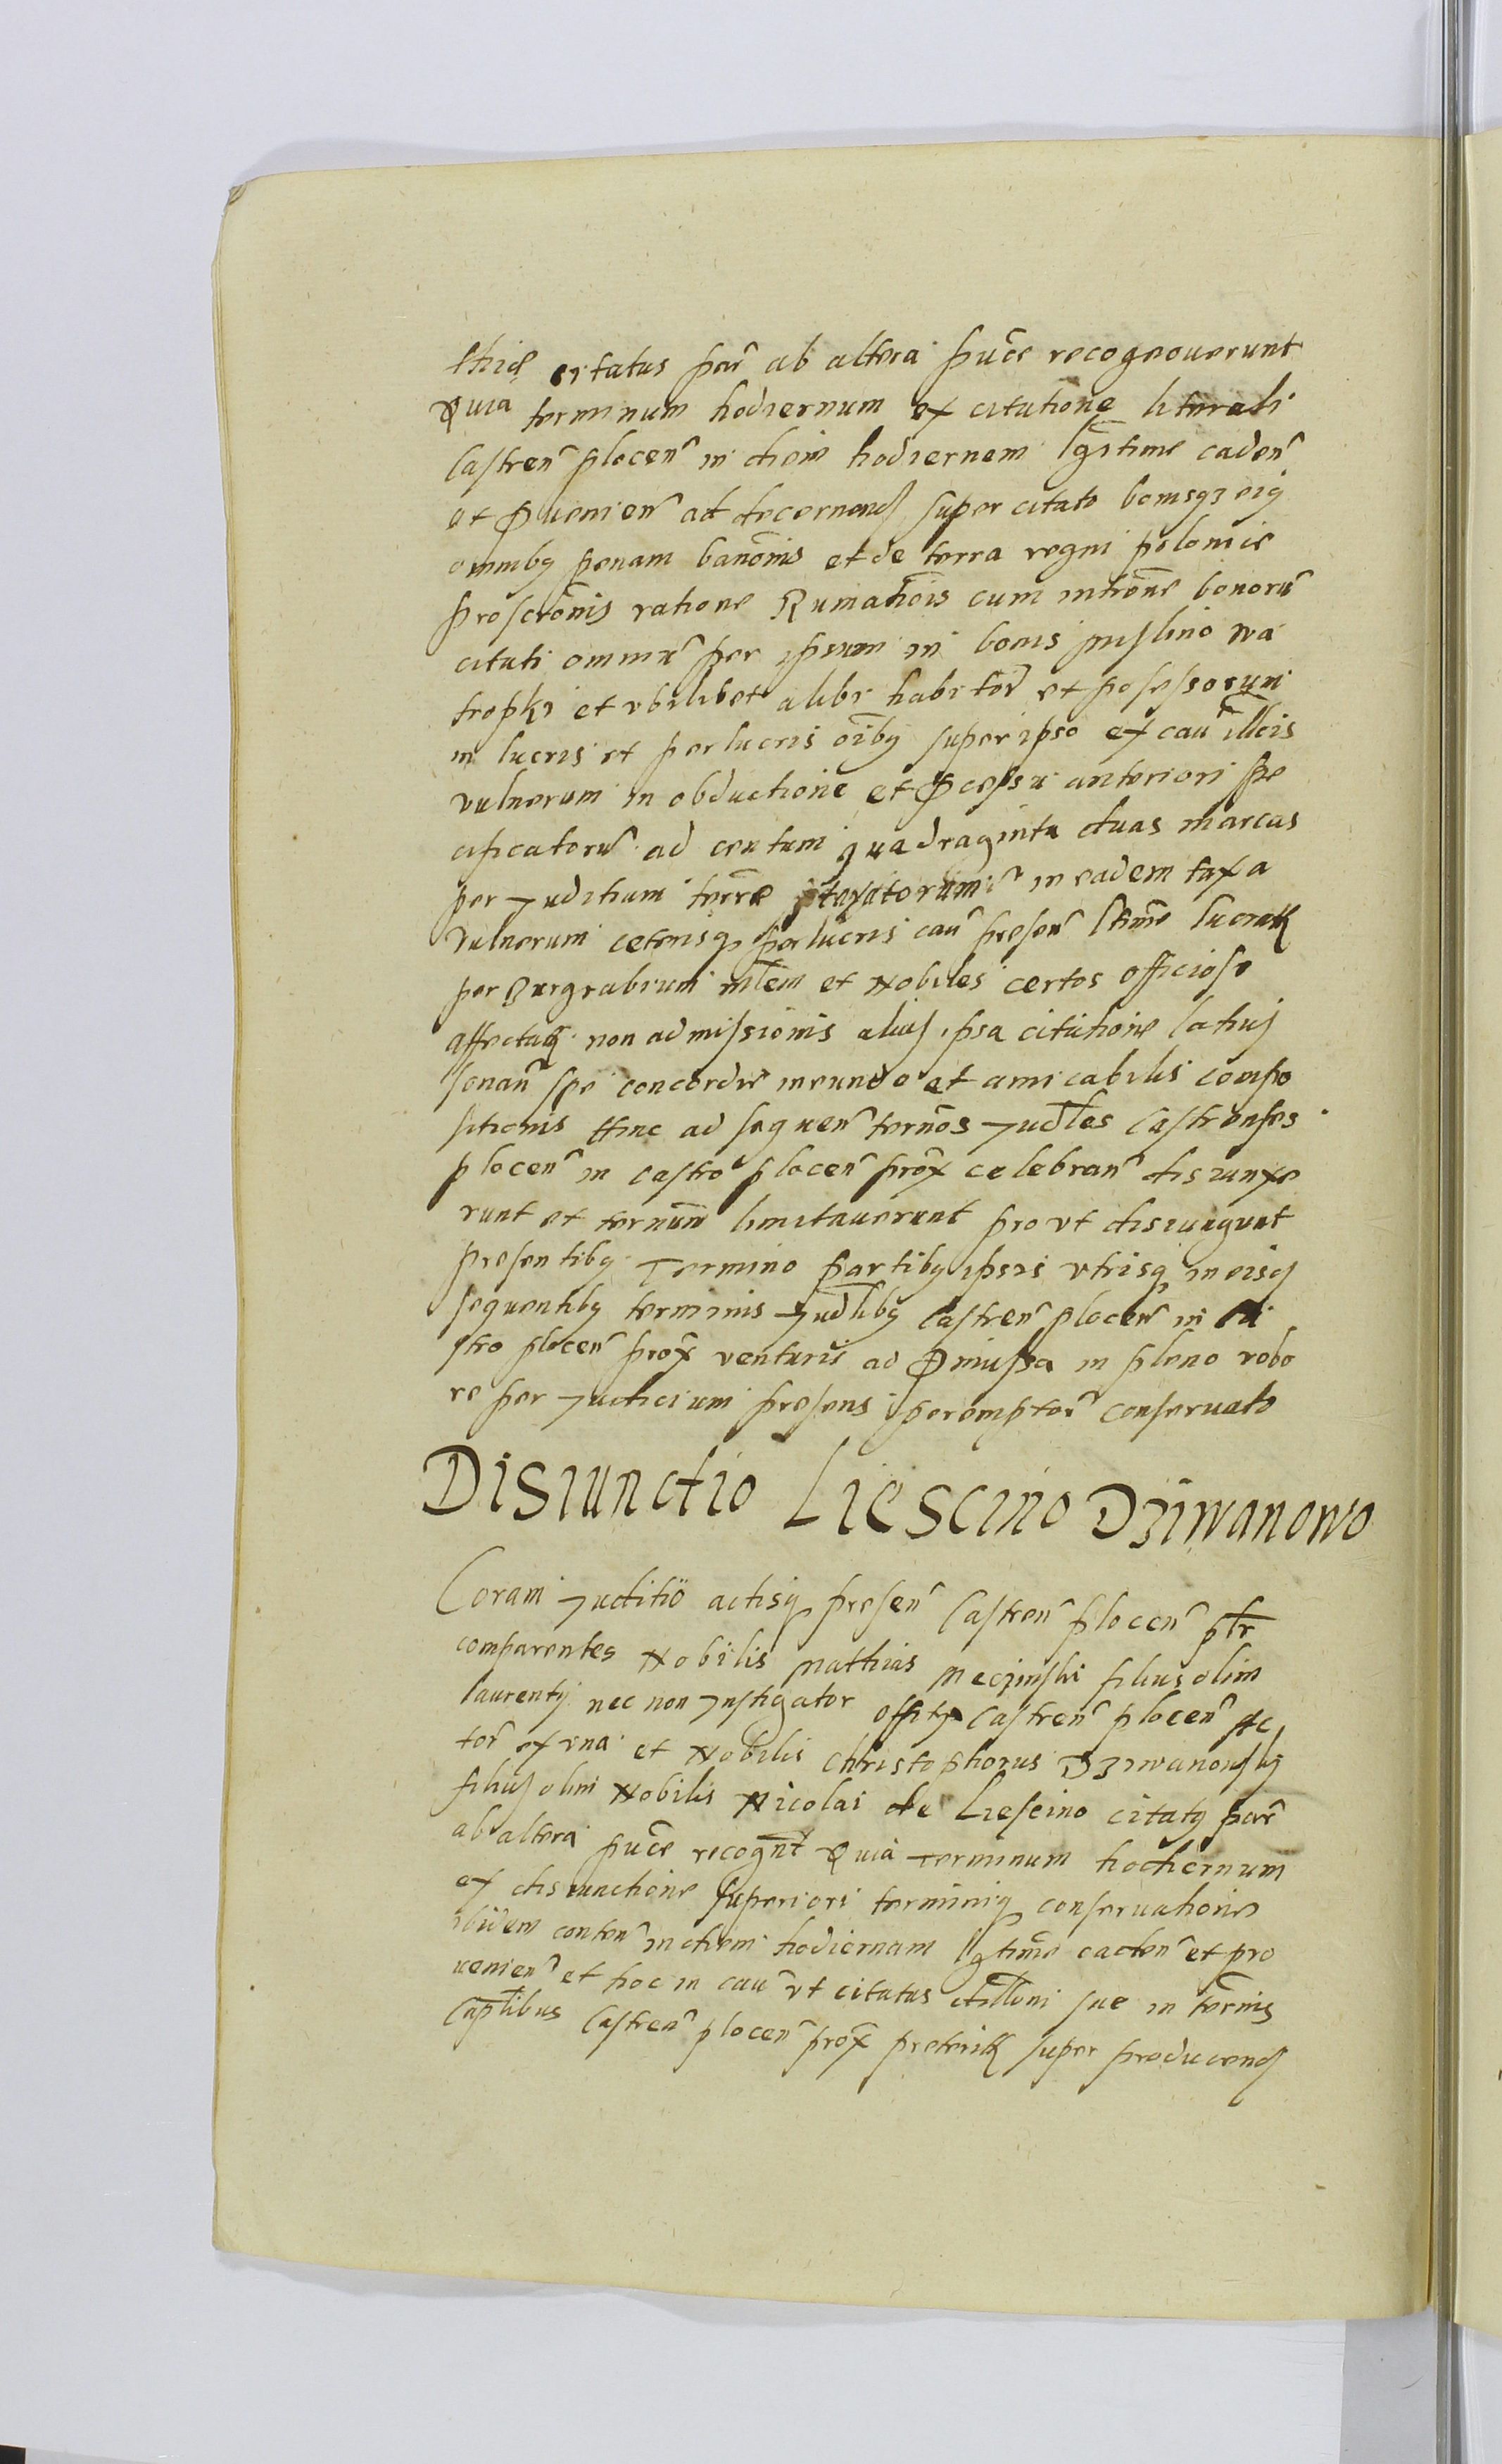 citatus par̃ ab altera pũce recognoverunt
Quia terminum hodiernum ex citatione literali
Castreñ ploceñ in diem hodiernem lḡitime cadeñ
et ꝓvenieñ ad decernenđ super citato bonisqꝫ eiꝰ
omnibꝰ penam banōnis et de terra regni polonie
proscrōnis ratione Rumatiōis cum intrōne bonorũ
citati omniũ per ipsum in bonis Mislino Wa
tropki et ubilibet alibi habitor̃ et possessorum
in lucris et perlucris oĩbꝰ super ipso ex cauˀ illcis
vulnerum in obductione et ꝓcessu anteriori spe
cificatorũ ad centum quadraginta duas marcas
per Juditium terrē taxatorum in eadem taxa
vulnerum ceterisqꝫ perlucris cauˀ preseñ ltīme lucratꝭ
per Burgrabium mlem et Nobiles certos officiose
affectatꝭ non admissionis aliaſ ipsa citatione latiuſ
sonañ spe concordie ineundo et amicabilis compo
sitionis Hinc ad sequeñ terños Judles Castrenses
ploceñ in castro ploceñ prox̃ celebrañ disiunxe
runt et terñum limitaverunt prout disiungunt
presentibꝰ Termino partibꝰ ipsis utrisqꝫ in eisđ
sequentibꝰ terminis Judlibꝰ Castreñ ploceñ in Ca
stro ploceñ prox̃ venturis ad ꝓmissa in pleno robo
re per Judicium presens peremptor̃ conservato
Disiunctio Liescino Dziwanowo
Coram Juditio actisqꝫ preseñ Castreñ ploceñ ptr
comparentes Nobilis Mathias Meczinski filius olim
laurentij nec non Instigator offitij Castreñ ploceñ Ac
tor̃ ex una et Nobilis Christophorus Dziwanowskj
filiuſ olim Nobilis Nicolai de Liescino citatꝰ par̃
ab altera pũce recognt̃ Quia Terminum hodiernum
ex disiunctione superiori terminiqꝫ conservatione
ibidem conteñ in diem hodiernam lgtīme cadeñ et pro
venieñ et hoc in cauˀ ut citatus sue in terñis
Caplibus Castreñ ploceñ prox̃ preteritꝭ super producenđ